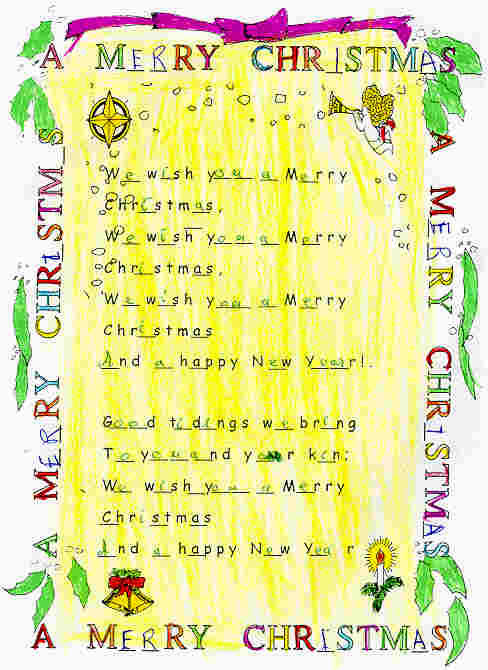 A MERRY CHRISTMAS
A MERRY CHRISTM_S
A MERRY CHRISTMAS
We wish you a Merry
Christmas,
We wish you a Merry
Christmas,
We wish you a Merry
Christmas
And a happy New Year!.
Good tidings we bring
To you and your kin;
We wish you a Merry
Christmas
And a happy New Year
A MERRY CHRISTMAS